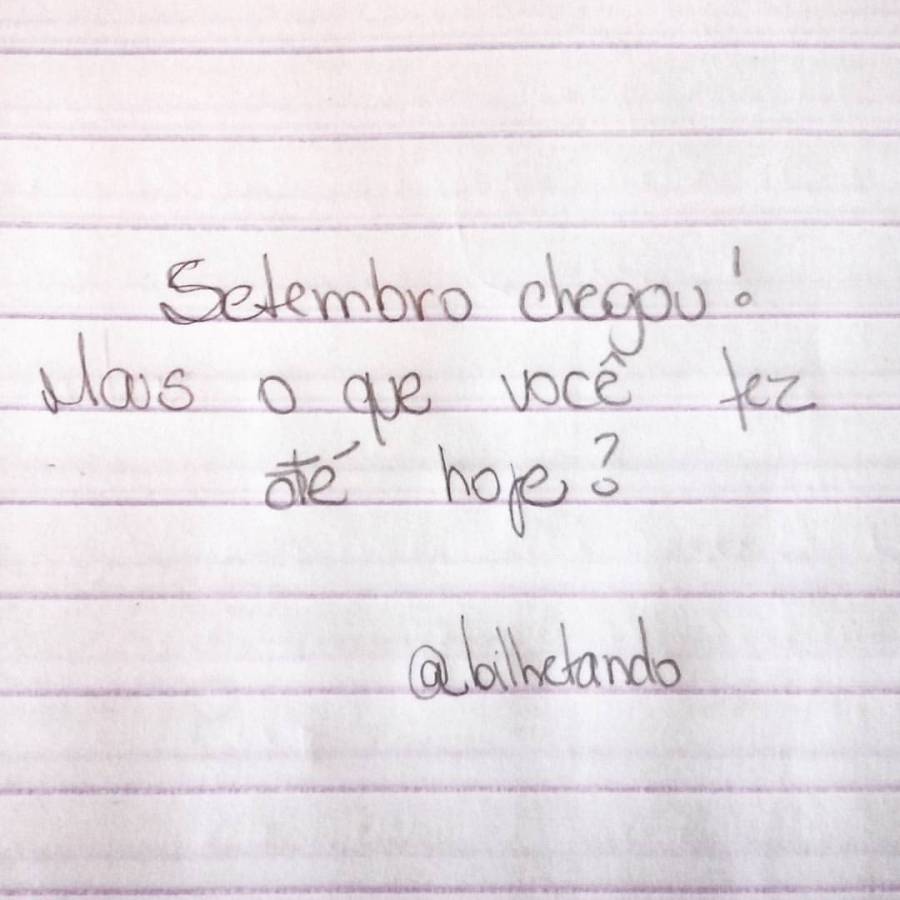 Setembro chegou!
Mais o que você fez
até hoje?
@bilhetando